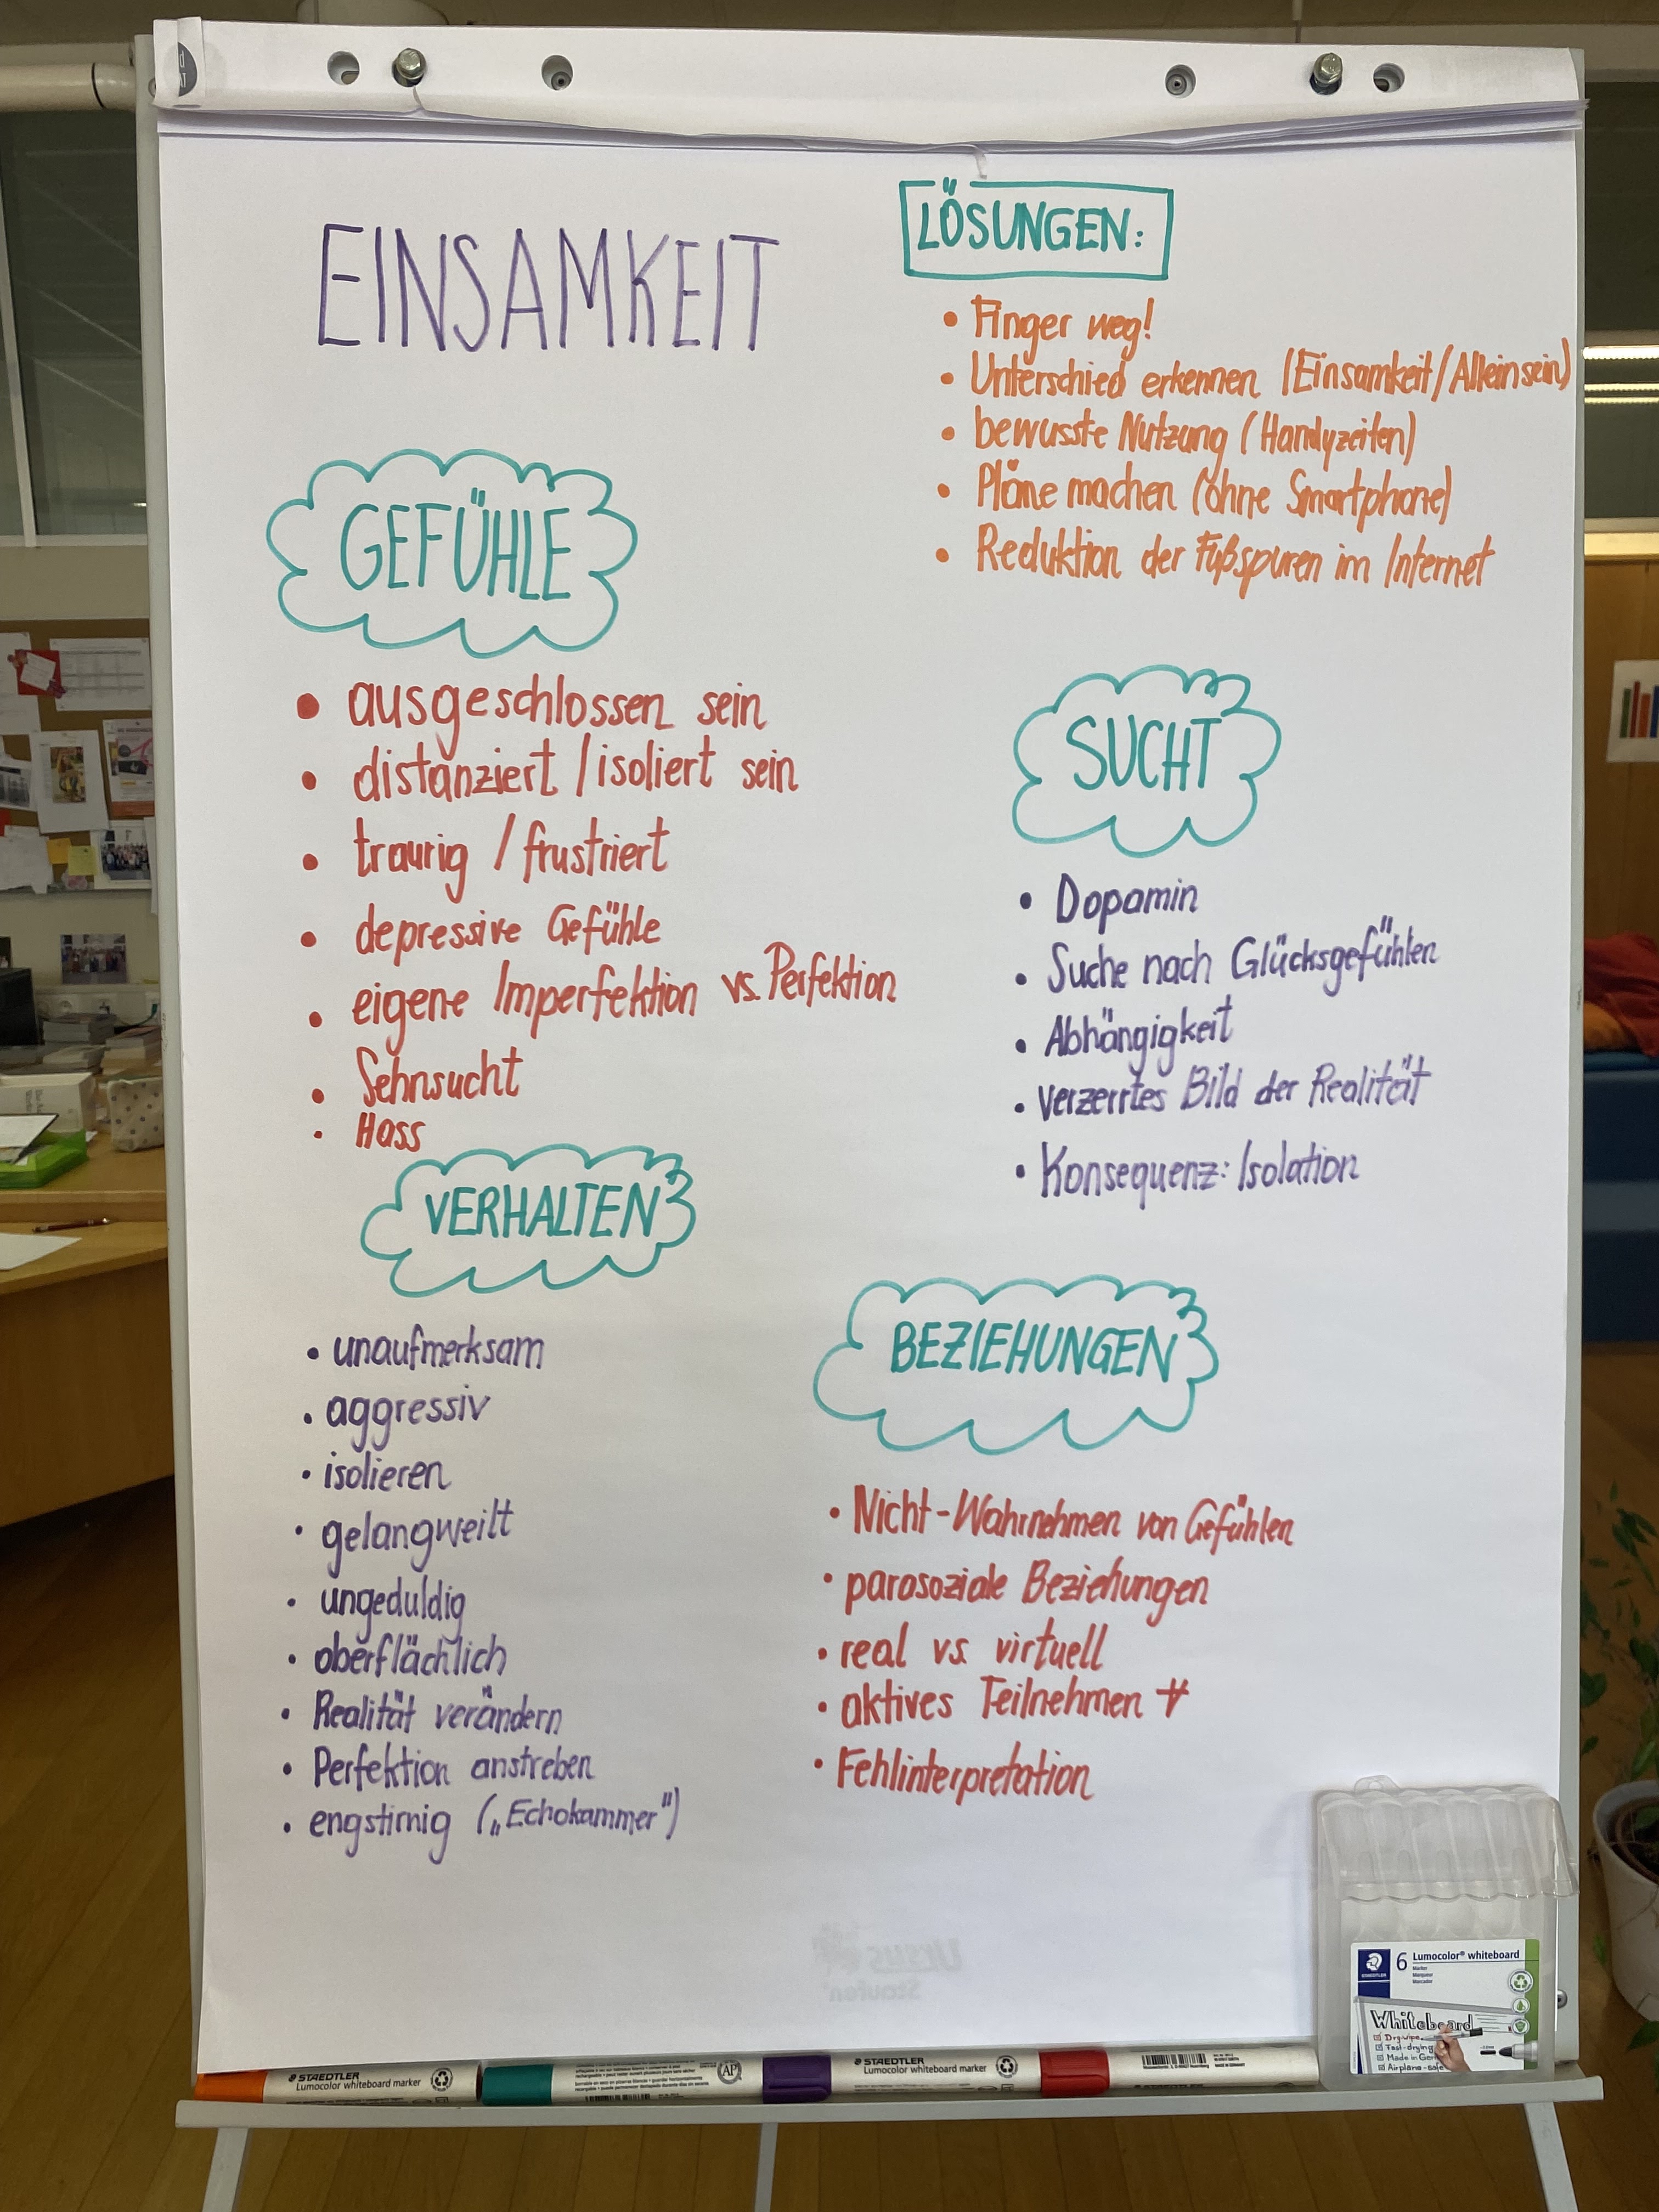 EINSAMKEIT
GEFÜHLE
• ausgeschlossen sein
• distanziert / isoliert sein
• traurig / frustriert
• depressive Gefühle
• eigene Imperfektion vs. Perfektion
• Sehnsucht
• Hass
VERHALTEN
• unaufmerksam
• aggressiv
• isolieren
• gelangweilt
• ungeduldig
• oberflächlich
• Realität verändern
• Perfektion anstreben
• engstirnig („Echokammer")
LÖSUNGEN:
• Finger weg!
• Unterschied erkennen (Einsamkeit/Alleinsein)
• bewusste Nutzung (Handyzeiten)
• Pläne machen (ohne Smartphone)
• Reduktion der Fußspuren im Internet
SUCHT
• Dopamin
• Suche nach Glücksgefühlen
• Abhängigkeit
• verzerrtes Bild der Realität
• Konsequenz: Isolation
BEZIEHUNGEN
• Nicht-Wahrnehmen von Gefühlen
• parasoziale Beziehungen
• real vs. virtuell
• aktives Teilnehmen
• Fehlinterpretation
Ursus
Staufen
STAEDTLER
6 Lumocolor® whiteboard
Marker
Marqueur
Marcador
Whiteboard
Dry-wipe
Fast-drying
Made in Ger
Airplane-safe
STAEDTLER
Lumocolor whiteboard marker
AP
STAEDTLER
Lumocolor whiteboard marker